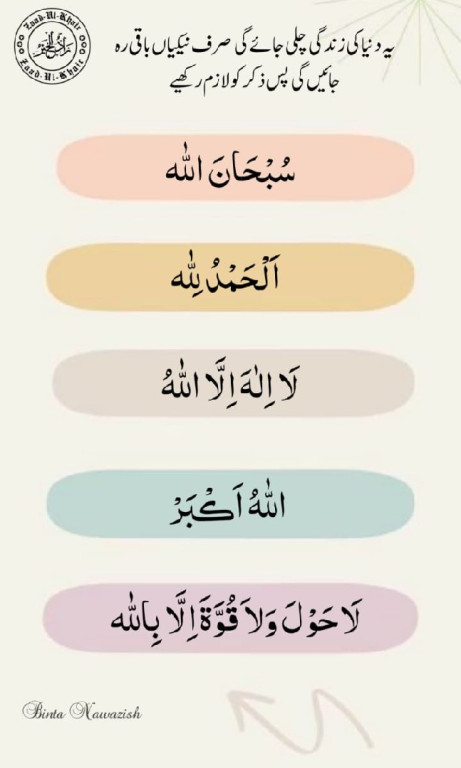 Zaad-Ul-Khair
Zaad-Ul-Khair
یہ دنیا کی زندگی چلی جائے گی صرف نیکیاں باقی رہ
جائیں گی پس ذکر کو لازم رکھیے
سُبْحَانَ اللّٰه
اَلْحَمْدُ لِلّٰه
لَا اِلٰهَ اِلَّا اللّٰهُ
اللّٰهُ اَكْبَرْ
لَا حَوْلَ وَلَا قُوَّةَ اِلَّا بِاللّٰه
Binta Nawazish